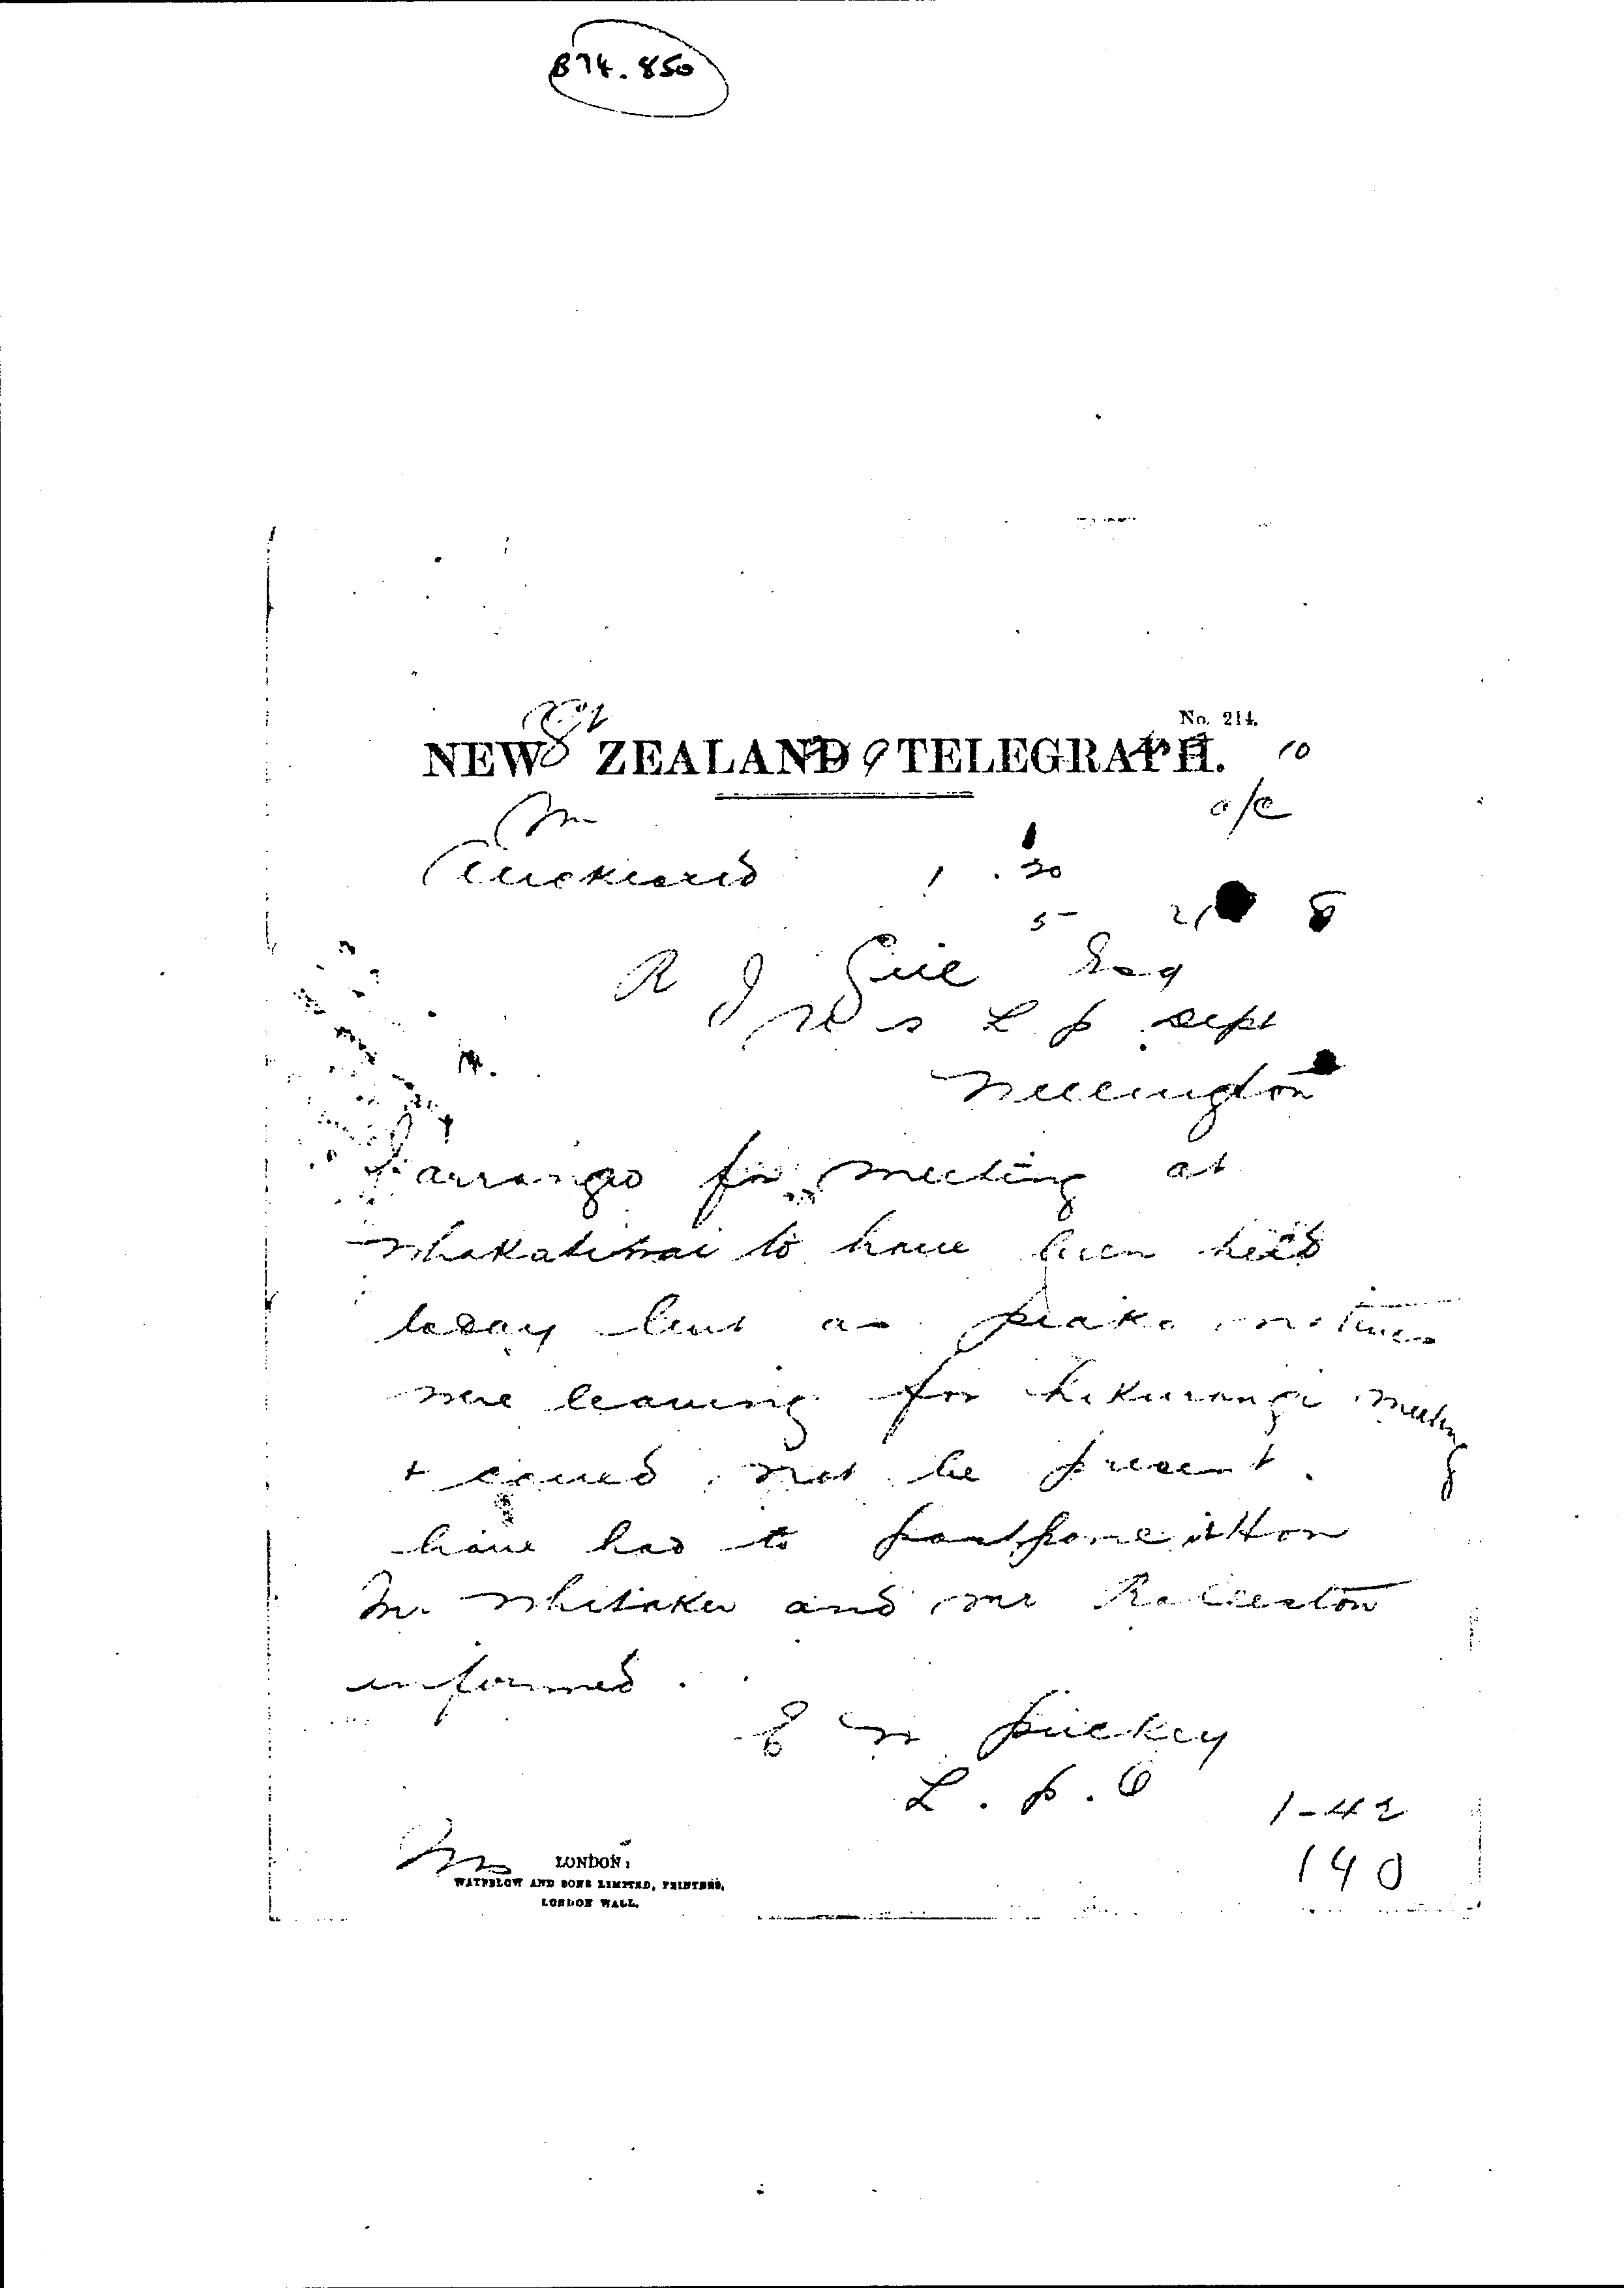 B74.850
No. 214.
NEW ZEALAND TELEGRAPH.
10
o/c
Auckland 1 . 20
5 21 8
R J Gill Esq
N L P Dept
Wellington
I arranged for meeting at
Whakatiwai to have been held
today but as piako natives
were leaving for hikurangi meeting
+ could not be present.
have had to postpone it Hon
Mr Whitaker and mr Rolleston
informed.
E W Puckey
L . P . O
1-42
140
LONDON:
WATERLOW AND SONS LIMITED, PRINTERS,
LONDON WALL.